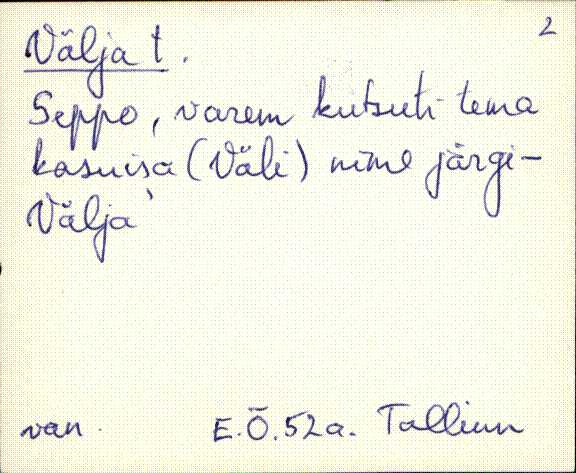 2
Välja t.
Seppo, varem kutsuti tema
kasuisa (Väli) nime järgi -
Välja'
van. E.Ö.52a. Tallinn